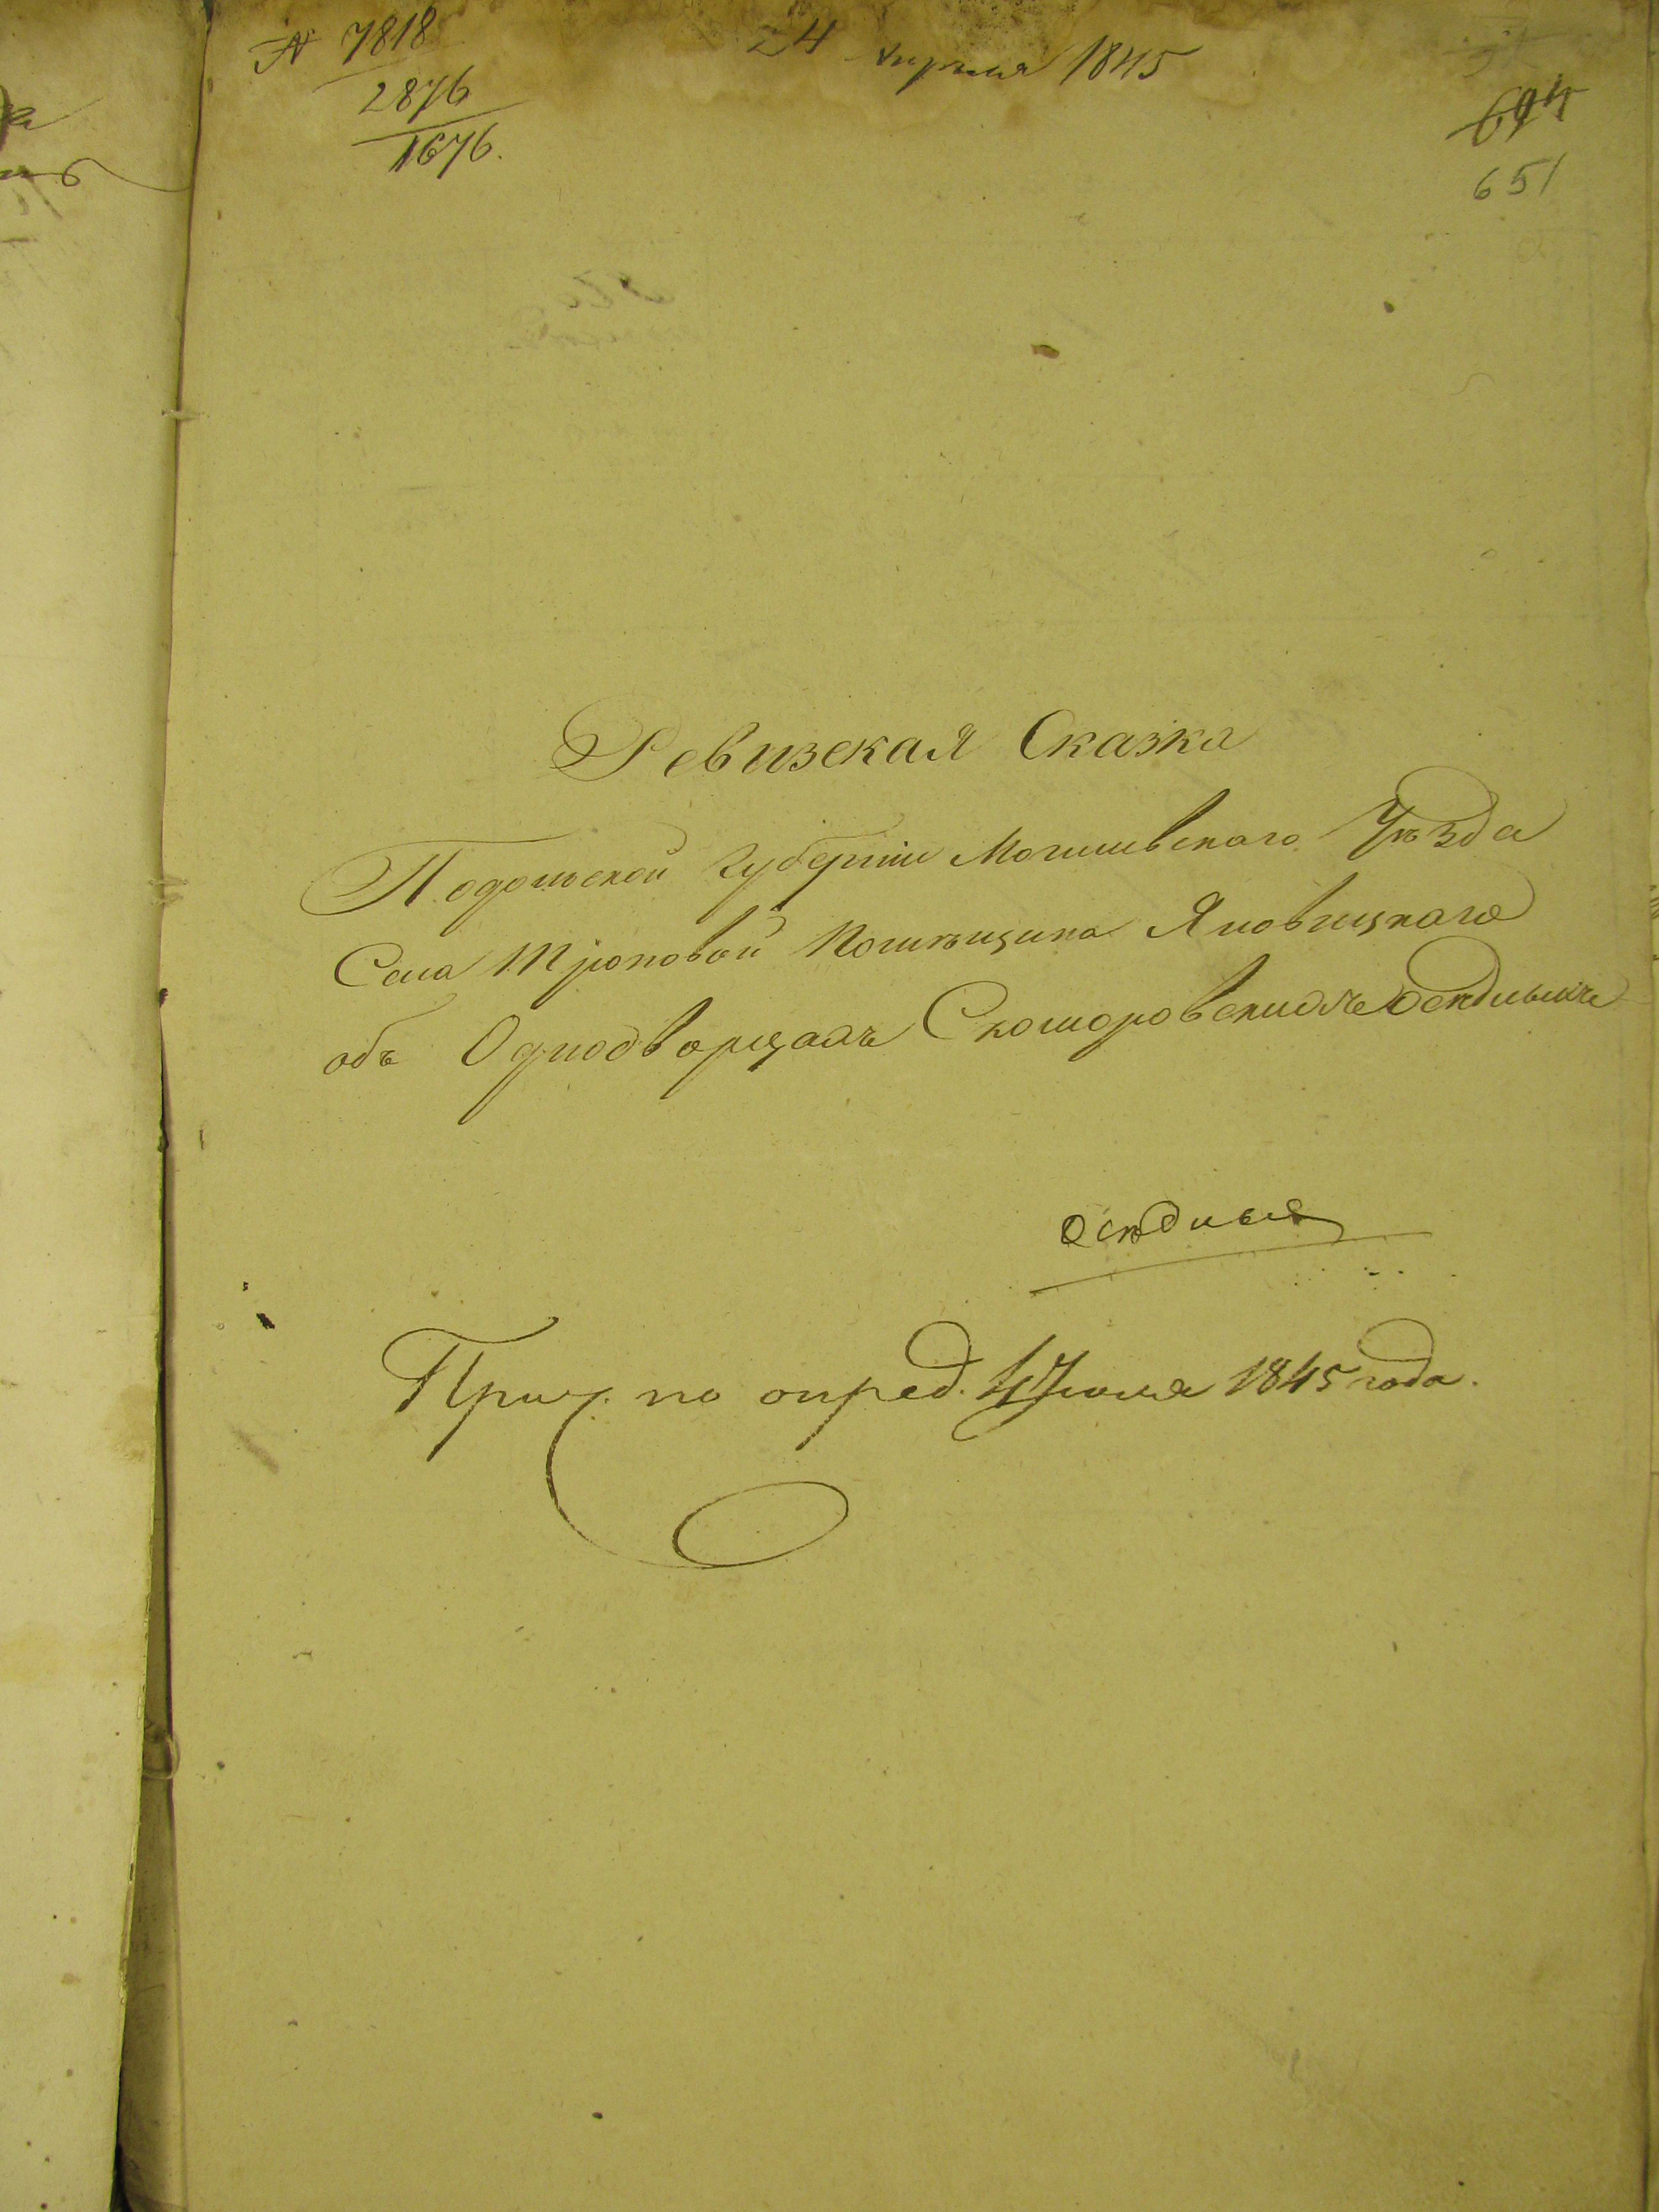 № 7818
2876
1676.
24 Апреля 1845
694
651
Ревизская Сказка
Подольской Губерніи Могилевскаго Уѣзда
Села Троповой Помѣщика Яновицкаго
объ Однодворцахъ Скоморовскихъ осѣдлыхъ
осѣдлыя
Прич. по опред. 4 Іюля 1845 года.